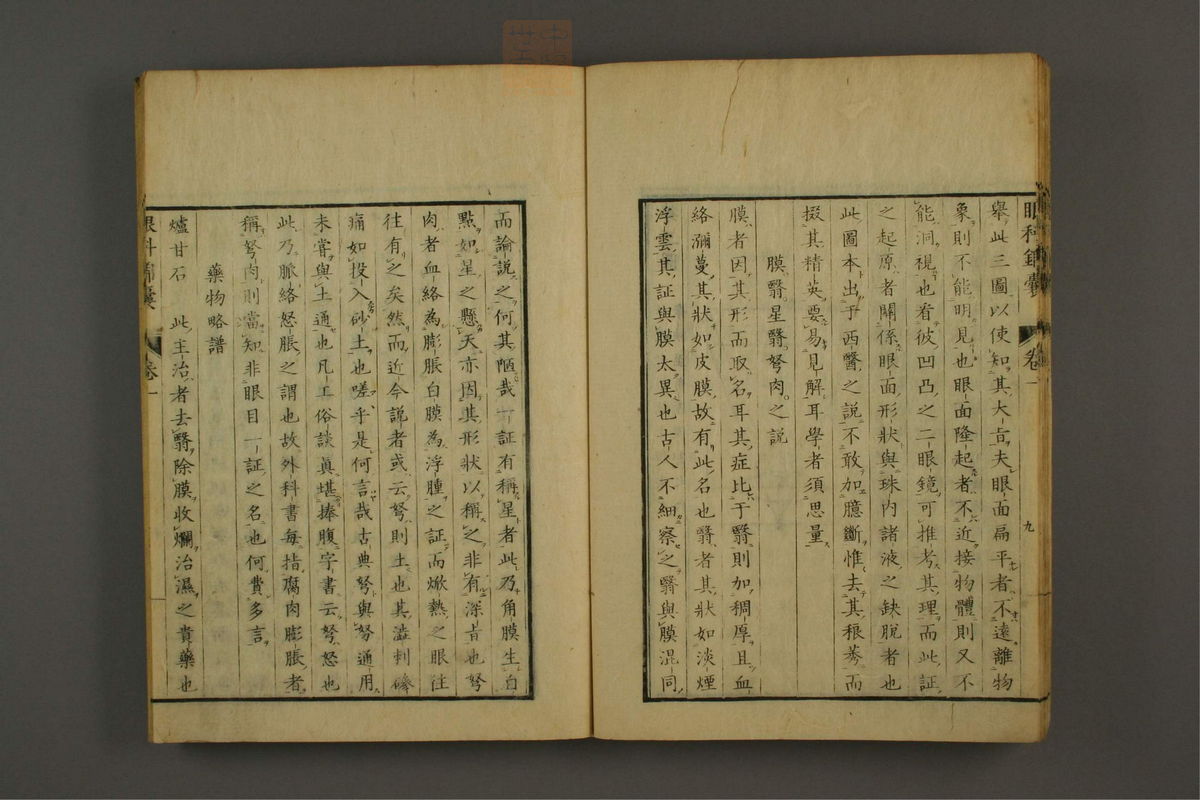 眼科錦囊 卷一 九
舉此三圖以使知其大旨夫眼面扁平者不遠離物
象則不能明見也眼面隆起者不近接物體則又不
能洞視也看彼凹凸之二眼鏡可推考其理而此証
之起原者關係眼面形狀與珠內諸液之缺脫者也
此圖本出于西醫之說不敢加臆斷惟去其稂莠而
掇其精英要易見解耳學者須思量
膜翳星翳胬肉之說
膜者因其形而取名耳其症比于翳則加稠厚且血
絡瀰蔓其狀如皮膜故有此名也翳者其狀如淡煙
浮雲其証與膜太異也古人不細察之翳與膜混同
而論說之何其陋哉証有稱星者此乃角膜生白
點如星之懸天亦因其形狀以稱之非有深旨也胬
肉者血絡為膨脹白膜為浮腫之証而焮熱之眼往
往有之矣然而近今說者或云胬則土也其澁刺磣
痛如投入砂土也嗟乎是何言哉古典胬與努通用
未嘗與土通也凡工俗談眞堪捧腹字書云努怒也
此乃脈絡怒脹之謂也故外科書每指腐肉膨脹者
稱胬肉則當知非眼目一証之名也何費多言
藥物略譜
爐甘石 此主治者去翳除膜收爛治濕之貴藥也
眼科錦囊 卷一